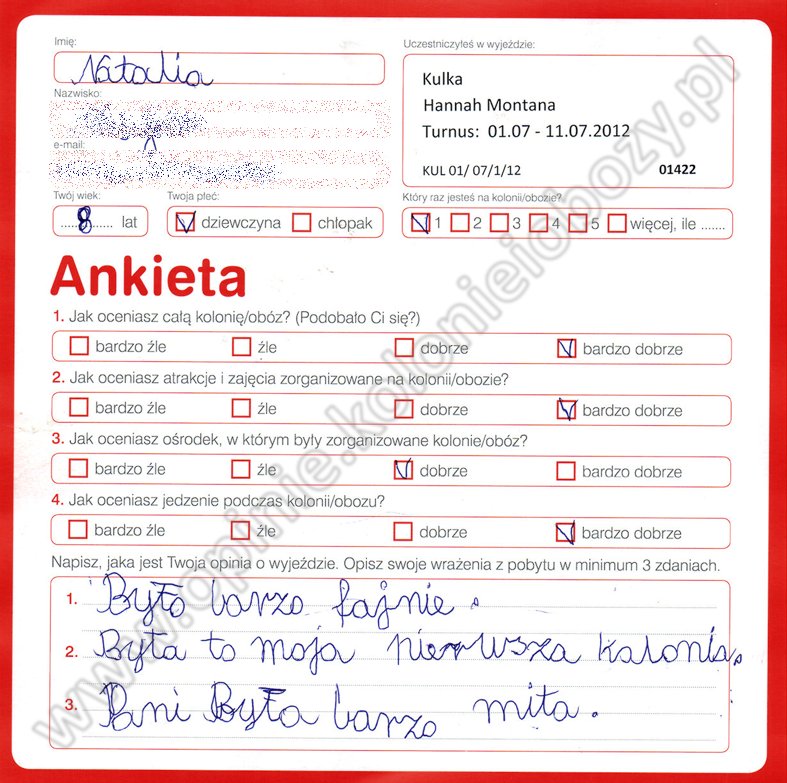 Imię:
Natalia
Uczestniczyłeś w wyjeździe:
Kulka
Hannah Montana
Turnus: 01.07 - 11.07.2012
KUL 01/ 07/1/12 01422
Nazwisko:
e-mail:
Twój wiek:
8 lat
Twoja płeć:
dziewczyna chłopak
Który raz jesteś na kolonii/obozie?
1 2 3 4 5 więcej, ile .......
Ankieta
1. Jak oceniasz całą kolonię/obóz? (Podobało Ci się?)
bardzo źle źle dobrze bardzo dobrze
2. Jak oceniasz atrakcje i zajęcia zorganizowane na kolonii/obozie?
bardzo źle źle dobrze bardzo dobrze
3. Jak oceniasz ośrodek, w którym były zorganizowane kolonie/obóz?
bardzo źle źle dobrze bardzo dobrze
4. Jak oceniasz jedzenie podczas kolonii/obozu?
bardzo źle źle dobrze bardzo dobrze
Napisz, jaka jest Twoja opinia o wyjeździe. Opisz swoje wrażenia z pobytu w minimum 3 zdaniach.
1. Było barzo fajnie.
2. Była to moja pierwsza kalonia.
3. Pani Była barzo miła.
www.opinie.kolonieiobozy.pl